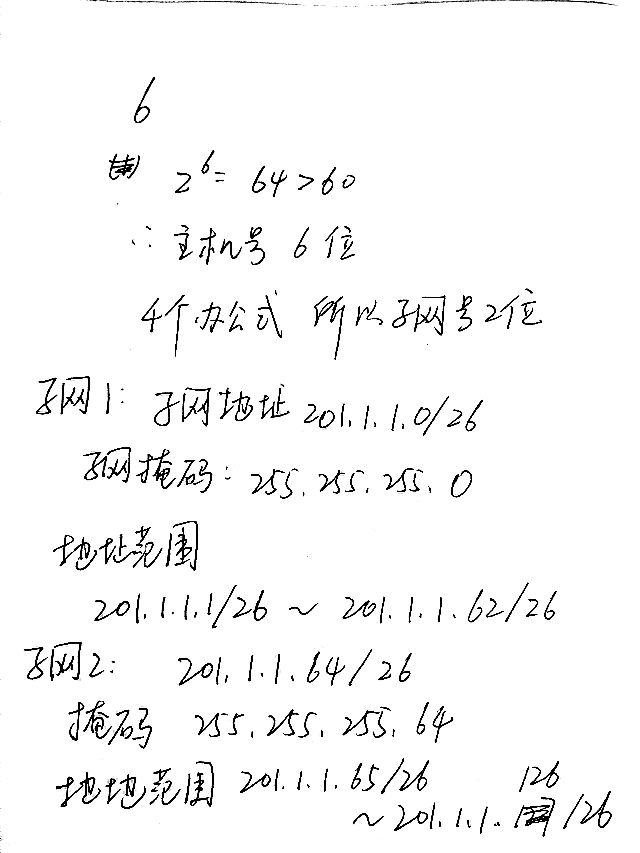 6
2⁶= 64>60
∴ 主机号 6位
4个办公式 所以子网号2位
子网1: 子网地址 201.1.1.0/26
子网掩码: 255.255.255.0
地址范围
201.1.1.1/26 ~ 201.1.1.62/26
子网2: 201.1.1.64/26
掩码 255.255.255.64
地地范围 201.1.1.65/26
~201.1.1.126/26